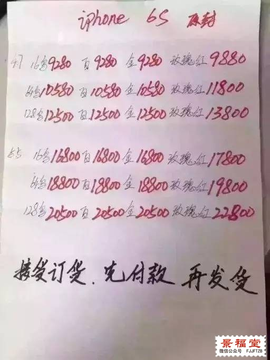 iphone 6S 原封
4.7 16G 9280 白 9280 金 9280 玫瑰红 9880
10580 白 10580 金 10580 玫瑰红 11800
128 12500 白 12500 金 12500 玫瑰红 13800
5.5 16 16800 白 16800 金 16800 玫瑰红 17800
18800 白 18800 金 18800 玫瑰红 19800
128 20500 白 20500 金 20500 玫瑰红 22800
接受订货.先付款 再发货
景福堂
微信公众号:FJJFTZB